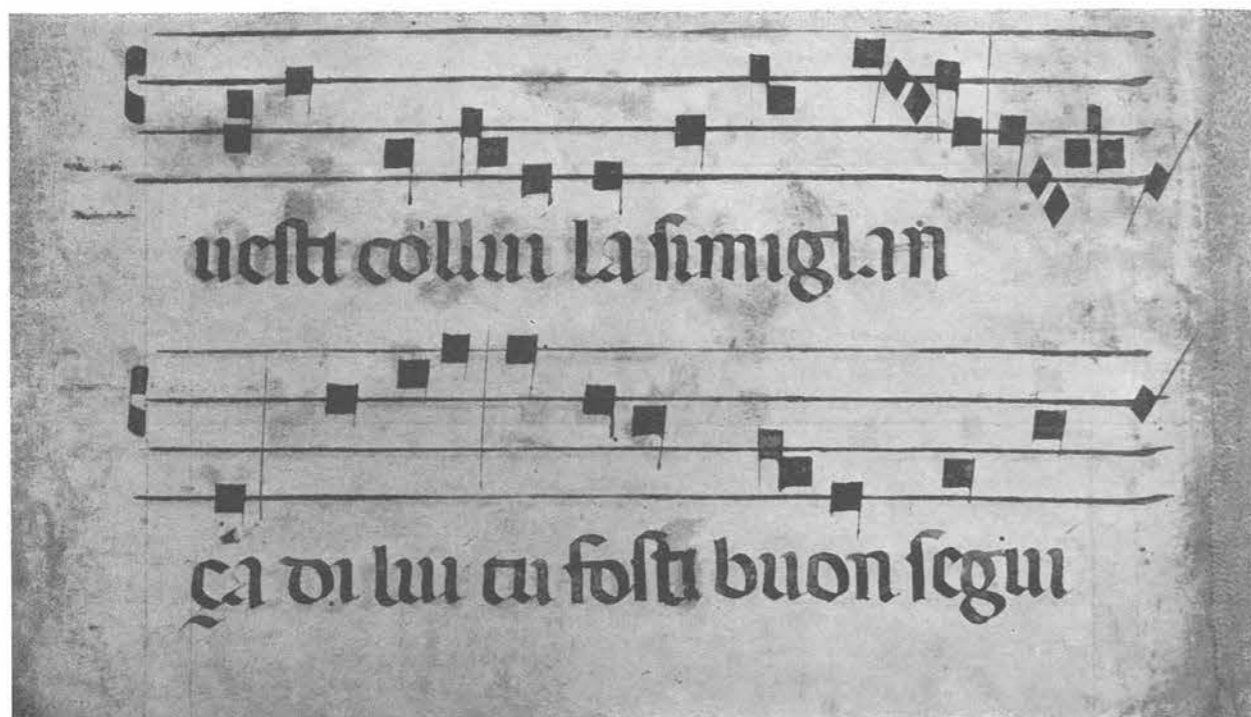 uesti collui la simiglan
ça di lui tu fosti buon segui